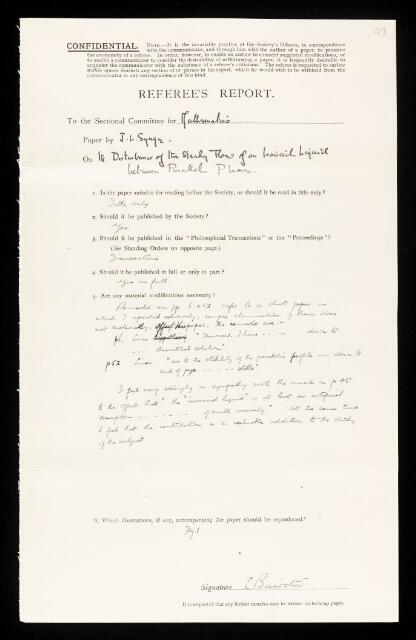 97
CONFIDENTIAL. NOTE.—It is the invariable practice of the Society's Officers, in correspondence
with the communicator, and through him with the author of a paper, to preserve
the anonymity of a referee. In order, however, to enable an author to consider suggested modifications, or
to enable a communicator to consider the desirability of withdrawing a paper, it is frequently desirable to
acquaint the communicator with the substance of a referee's criticisms. The referee is requested to enclose
within square brackets any section of or phrase in his report, which he would wish to be withheld from the
communicator in any correspondence of this kind.
REFEREE'S REPORT.
To the Sectional Committee for Mathematics
Paper by J. L. Synge.
On the Disturbance of the Steady Flow of an Inviscid Liquid
between Parallel Planes.
1. Is the paper suitable for reading before the Society, or should it be read in title only?
Title only
2. Should it be published by the Society?
Yes
3. Should it be published in the "Philosophical Transactions" or the "Proceedings"?
(See Standing Orders on opposite page.)
Transactions
4. Should it be published in full or only in part?
Yes in full.
5. Are any material modifications necessary?
Remarks on pp 6 & 52 refer to a short paper on
which I reported adversely,
not materially the paper. The remarks are -
p6 lines "However, I have - - - - down to
- - - - theoretical solution"
p52 lines "as to the stability of the parabolic profile — down to
end of page - - - - stable"
I feel very strongly in sympathy with the remark on p 45
to the effect that "the "inviscid liquid" is at best an artificial
conception - - - - - of small viscosity" At the same time
I feel that the contribution is a valuable addition to the study
of the subject
6. Which illustrations, if any, accompanying the paper should be reproduced?
Fig 1
Signature L Bairstow
It is requested that any further remarks may be written on foolscap paper.